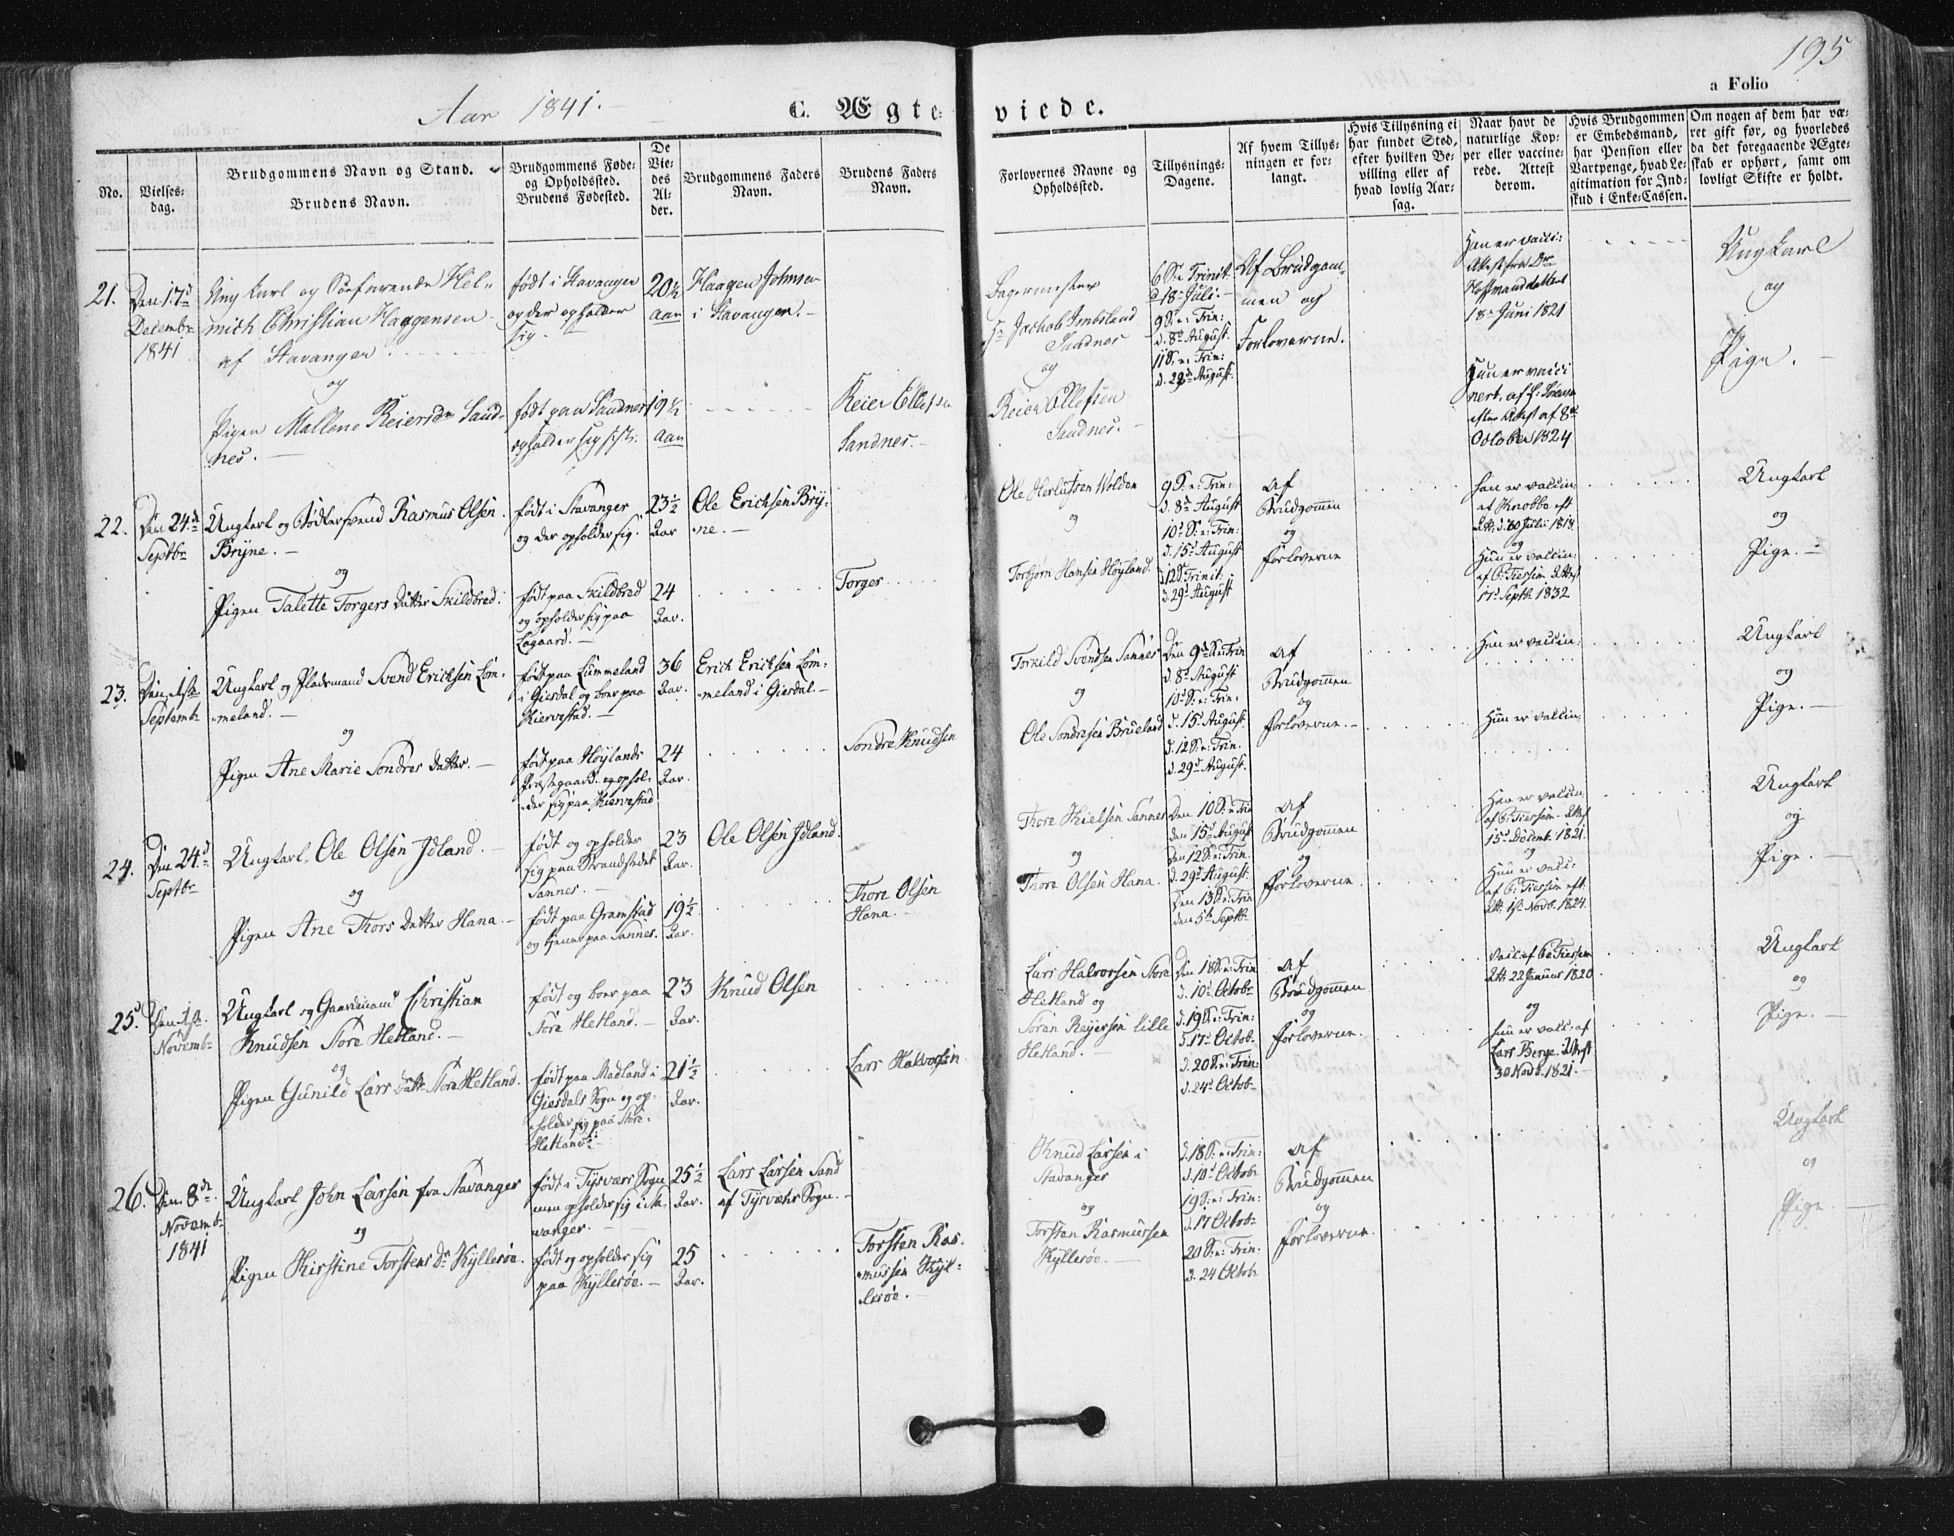 195
a Folio
Aar 1841.
C. Ægteviede.
No.
Vielsesdag.
Brudgommens Navn og Stand.
Brudens Navn.
Brudgommens Føde-
og Opholdssted.
Brudens Fødested.
De
Vie-
des
Al-
der.
Brudgommens Faders
Navn.
Brudens Faders
Navn.
Forlovernes Navne og
Opholdssted.
Tillysnings-
Dagene.
Af hvem Tillys-
ningen er for-
langt.
Hvis Tillysning ei
har fundet Sted,
efter hvilken Be-
villing eller af
hvad lovlig Aar-
sag.
Naar havt de
naturlige Kop-
per eller vaccine-
rede. Attest
derom.
Hvis Brudgommen
er Embedsmand,
har Pension eller
Vartpenge, hvad Le-
gitimation for Ind-
skud i Enke-Cassen.
Om nogen af dem har væ-
ret gift før, og hvorledes
da det foregaaende Ægte-
skab er ophørt, samt om
lovligt Skifte er holdt.
21.
Den 17d
Decembr
1841
Ungkarl og Søefarende Hel-
mich Christian Haagensen
af Stavanger
og
Pigen Mallene Reiersdr Sand-
nes.
født i Stavanger
og der opholder
sig.
født paa Sandnes
opholder sig
20½
Aar
19½
Aar
Haagen Johnsen
i Stavanger.
Reier Ellefsen
Sandnes.
Bagermester
Hr Jachob Imbsland
Sandnes
og
Reier Ellefsen
Sandnes.
6 S. e. Trinit.
d 18 Juli.
9 S. e. Trin:
d. 8d August.
11 S. e. Trin:
d. 22d August.
Af Brudgom-
men og
Forloverne.
Han er vacci:
Attest fra Dr
Hoffmand dateret
18de Juni 1821
Hun er vacci
nert. af
efter Attest af 8de
October 1824
Ungkarl
og
Pige.
22.
Den 24d
Septbr
Ungkarl og Bødkersvend Rasmus Olsen
Bryne.
og
Pigen Talette Torgers Datter Skildbred.
født i Stavanger
og der opholder sig.
født paa Skildbred
og opholder sig paa
Lagaard.
23½
Aar
24
Aar.
Ole Erichsen Bry-
ne.
Torger
Ole Herlufsen Wolden
og
Torbjørn Hansen Høyland.
9 S. e. Trin:
d. 8d August
10d S. e. Trin:
d. 15d August
d 12 S Trinit:
d. 29d August
Af
Brudgommen
og
Forloverne
han er vaccin
af Knobbe eft
Att. d. 20 Juli 1818
og
Hun er vaccin:
af C. Tiersen Attest
17d Septb. 1832
Ungkarl
og
Pige.
23.
Den 1ste
Septembr
Ungkarl og Pladsmand Svend Ericksen Lom-
meland.
og
Pigen Ane Marie Sondres Datter.
født paa Lummeland
i Giesdal og boer paa
Kiervestad.
født paa Høylands
Præstegaard og ophol-
der sig paa Kiervestad
36
Aar.
24
Aar.
Erick Ericksen Lom-
meland i Giesdal
Sondre Knudsen
Torkild Svendsen Sannes
og
Ole Sondresen Brueland
Den 9d S. e. Trin
d. 8d August
10d S. e: Trin:
d. 15d August.
d. 12 S. e: Trin.
d. 29d August.
Af
Brudgommen
og
Forloverne.
Han er vaccin:
Hun er vaccin:
Ungkarl
og
Pige.
24.
Den 24d
Septbr
Ungkarl. Ole Olsen Idland.
og
Pigen Ane Thors Datter Hana.
født og opholder
sig paa Strandstedet
Sannes.
født paa Gramstad
og tjener paa Sannes.
23
Aar.
19½
Aar.
Ole Olsen Idland.
Thore Olsen
Hana.
Thore Nielsen Sannes
og
Thore Olsen Hana.
Den 10 S. e: Trin
den 15d August
den 12 S. e: Trin.
d. 29d August.
Den 13 S. e: Trin
den 5te Septb
Af
Brudgommen
og
Forloverne.
Han er vaccin
af C. Tiersen. Attest
15d Decemb. 1821.
og
Hun er vacc:
af C. Tiersen eft.
Att. 1ste Novb. 1824.
Ungkarl
og
Pige.
25d.
Den 1ste
Novembr
Ungkarl og Gaardmand Christian
Knudsen Store Hetland.
og
Pigen Gunild Lars Datter Store Hetland.
født og boer paa
Store Hetland.
født paa Madland i
Giesdals Sogn og op-
holder sig paa Store
Hetland.
23
Aar.
21½
Aar.
Knud Olsen
Lars Halvorsen
Lars Halvorsen Store
Hetland og
Søren Reyersen Lille
Hetland.
Den 18 S. e: Trin
d. 10d Octobr
d. 19 S. e: Trin:
d. 17d Octob.
d. 20 S. e: Trin:
d. 24d Octob.
Af
Brudgommen
og
Forloverne.
Vacc. af C. Tiersen
Att. 22 Januar 1820.
og
hun er vacc. af
Lars Berge. Attest
30 Novb. 1821.
Ungkarl
og
Pige.
26.
Den 8de
Novemb.
1841
Ungkarl John Larsen fra Stavanger
og
Pigen Kirstine Torstens Dr Kyllesøe.
født i Tysvær Sogn
men opholder sig i Sta-
vanger.
født og opholder sig
paa Kyllesøe.
25½
Aar.
25
Aar.
Lars Larsen Sand
af Tysvær Sogn.
Torsten Ras-
mussen Kyl-
lesøe.
Knud Larsen i
Stavanger
og
Torsten Rasmussen
Kyllesøe.
d. 18 S. e: Trin:
d. 10d Octob.
19 S. e: Trin:
d. 17 Octob.
20 S. e: Trin:
d. 24 Octob.
Af
Brudgommen
og
Forloverne.
Ungkarl
og
Pige.